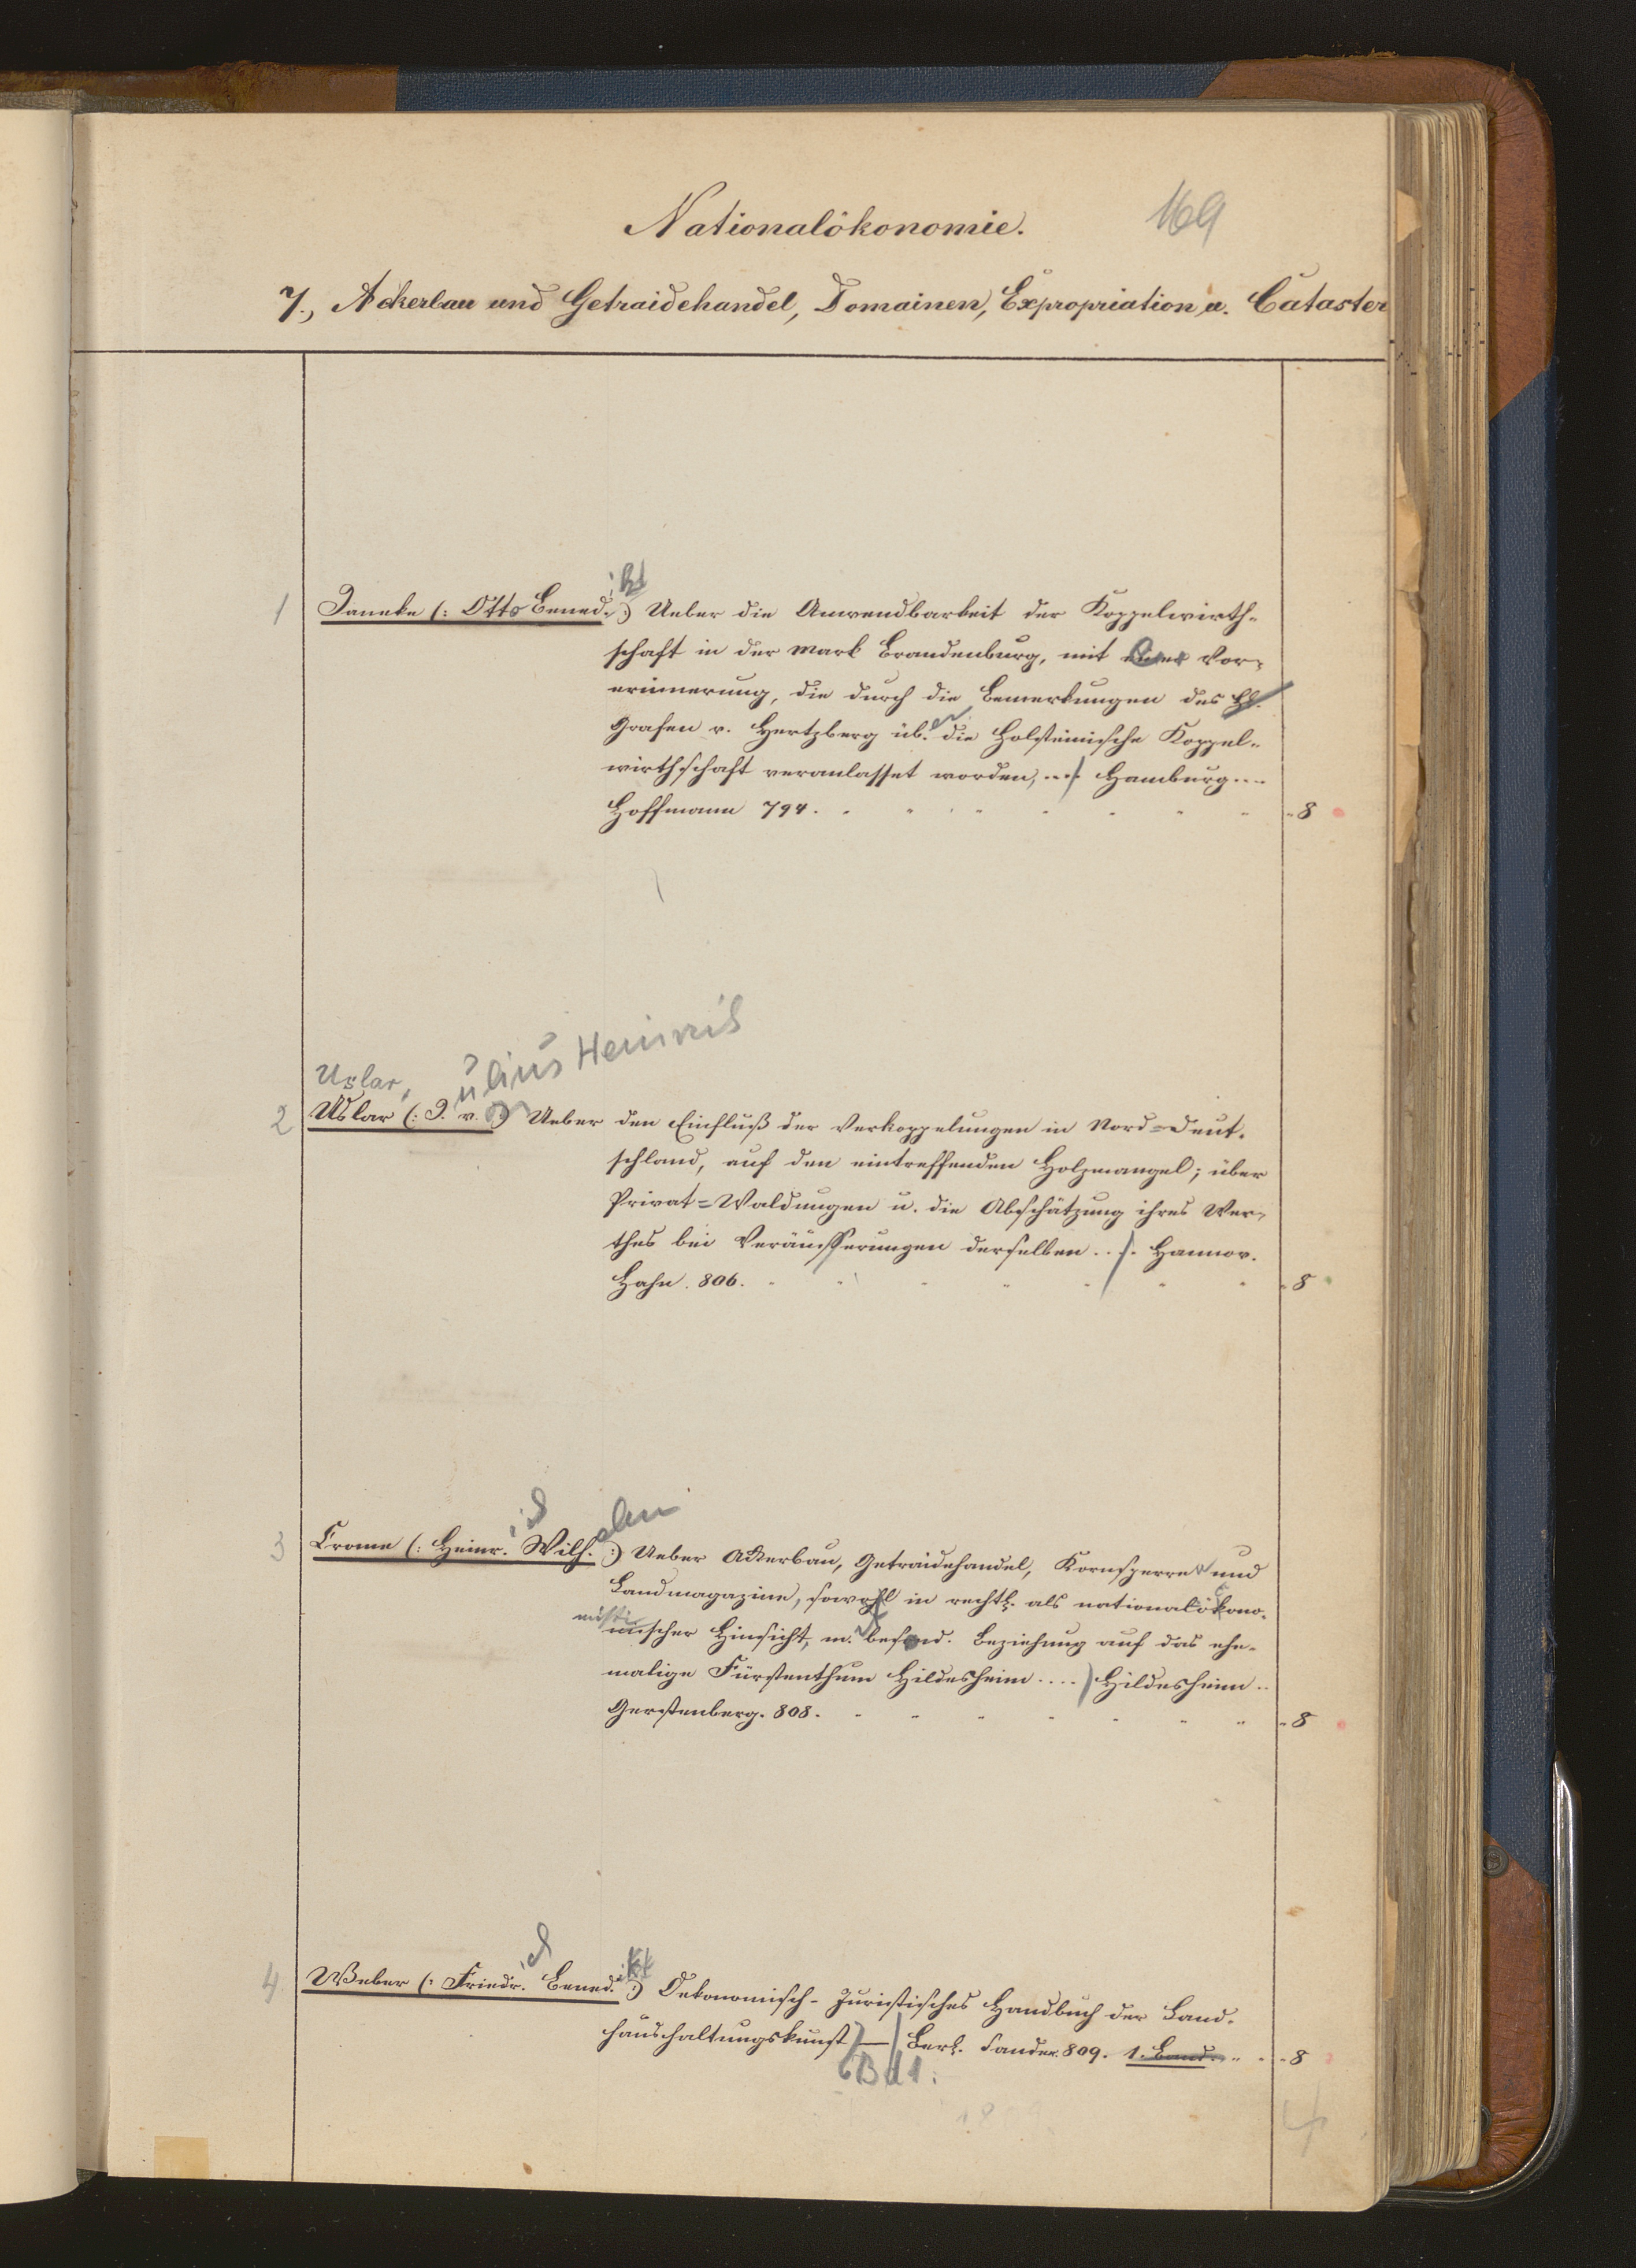 Nationalökonomie.
169
7., Ackerbau und Getraidehandel, Domainen, Expropriation u. Cataster
1 Janeke (: Otto Bened. :) Ueber die Anwendbarkeit der Koppelwirth-
schaft in der Mark Brandenburg, mit einer Vor-
erinnerung, die durch die Bemerkungen des H.
Grafen v. Hertzberg üb. die Holsteinische Koppel-
wirthschaft veranlasset worden, .../ Hamburg...
Hoffmann 794. 8
Julius Heinrich
Uslar,
2 Uslar (: J. v. :) Ueber den Einfluß der Verkoppelungen in Nord=Deut-
schland, auf den eintreffenden Holzmangel; über
Privat=Waldungen u. die Abschätzung ihres Wer-
thes bei Veräusserungen derselben . ./. Hannov.
Hahn. 806. 8
3 Crome (: Heinr. Wilh. :) Ueber Ackerbau, Getraidehandel, Kornsperre und
Landmagazine, sowohl in rechtl. als nationalökono-
mischer Hinsicht, m. besond. Beziehung auf das ehe-
malige Fürstenthum Hildesheim ..../ Hildesheim..
Gerstenberg. 808. 8
4 Weber (: Friedr. Bened. :) Oekonomisch-Juristisches Handbuch der Land-
haushaltungskunst / Berl. Sander. 809. 1. Band. 8
Bd 1.